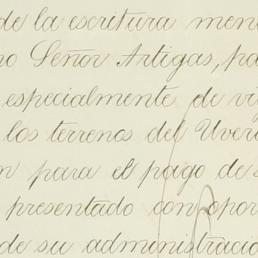 de la escritura men
no Señor Artigas, pa
especialmente de vi
los terrenos del Uver
n para el pago de s
presentado con opor
de su administracio